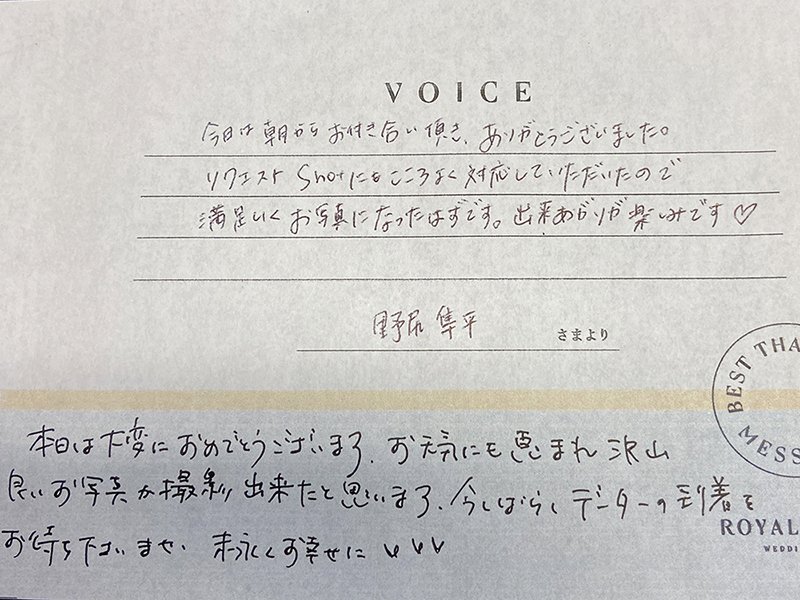 VOICE
今日は朝からお付き合い頂き、ありがとうございました。
リクエストShotにもこころよく対応していただいたので
満足いくお写真になったはずです。出来あがりが楽しみです♡
野尻 隼平 さまより
BEST THA
MESS
本日は大変におめでとうございます、お天気にも恵まれ沢山
良いお写真が撮影出来たと思います、今しばらくデーターの到着を
お待ち下さいませ 末永くお幸せに
ROYAL
WEDDI